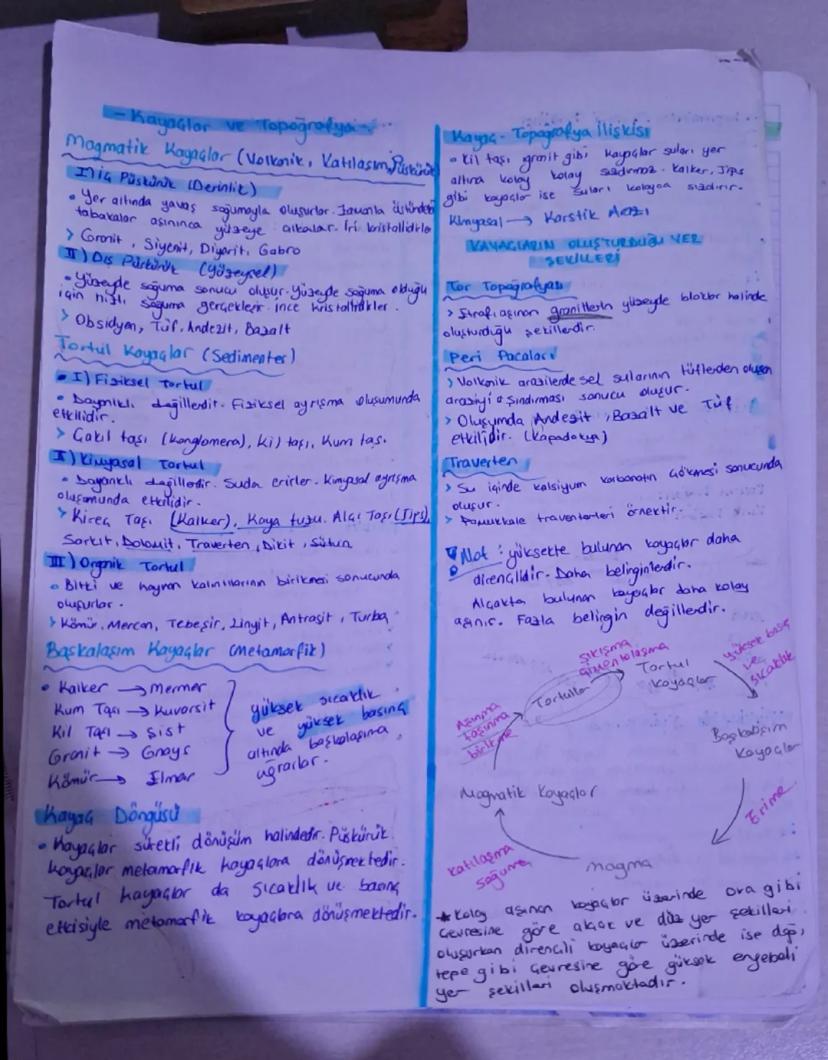 - Kayaçlar ve Topoğrafya -
Magmatik Kayaçlar (Volkanik, Katılaşım, Püskürük
I) İç Püskürük (Derinlik)
• Yer altında yavaş soğumayla oluşurlar. Zamanla üstündeki
tabakalar aşınınca yüzeye çıkarlar. İri kristallidirler
> Granit, Siyenit, Diyorit, Gabro
II) Dış Püskürük (Yüzeysel)
• Yüzeyde soğuma sonucu oluşur. Yüzeyde soğuma olduğu
için hızlı soğuma gerçekleşir. ince kristallidirler.
> Obsidyen, Tüf, Andezit, Bazalt
Tortul Kayaçlar (Sedimenter)
• I) Fiziksel Tortul
• Dayanıklı değillerdir. Fiziksel ayrışma oluşumunda
etkilidir.
> Çakıl taşı (Konglomera), Kil taşı, Kum taş.
II) Kimyasal Tortul
• Dayanıklı değillerdir. Suda erirler. Kimyasal ayrışma
oluşumunda etkilidir.
> Kireç Taşı (Kalker), Kaya tuzu. Alçı Taşı (Jips),
Sarkıt, Dolomit, Traverten, Dikit, Sütun
III) Organik Tortul
• Bitki ve hayvan kalıntılarının birikmesi sonucunda
oluşurlar.
> Kömür, Mercan, Tebeşir, Linyit, Antrasit, Turba
Başkalaşım Kayaçlar (Metamorfik)
• Kalker → Mermer
Kum Taşı → Kuvarsit
Kil Taşı → Şist
Granit → Gnays
Kömür → Elmas
yüksek sıcaklık
ve yüksek basınç
altında başkalaşıma
uğrarlar.
Kayaç Döngüsü
• Kayaçlar sürekli dönüşüm halindedir. Püskürük
kayaçlar metamorfik kayaçlara dönüşmektedir.
Tortul kayaçlar da sıcaklık ve basınç
etkisiyle metamorfik kayaçlara dönüşmektedir.
Kayaç - Topoğrafya İlişkisi
• Kil taşı, granit gibi kayaçlar suları yer
altına kolay kolay sızdırmaz. Kalker, Jips
gibi kayaçlar ise suları kolayca sızdırır.
Kimyasal → Karstik Arazi
KAYAÇLARIN OLUŞTURDUĞU YER
ŞEKİLLERİ
Tor Topoğrafyası
> Etrafı aşınan granitlerin yüzeyde bloklar halinde
oluşturduğu şekillerdir.
Peri Bacaları
> Volkanik arazilerde sel sularının tüflerden oluşan
araziyi aşındırması sonucu oluşur.
> Oluşumda Andezit, Bazalt ve Tüf
etkilidir. (Kapadokya)
Traverten
> Su içinde kalsiyum karbonatın çökmesi sonucunda
oluşur.
> Pamukkale travertenleri örnektir.
Not: yüksekte bulunan kayaçlar daha
dirençlidir. Daha belirginlerdir.
Alçakta bulunan kayaçlar daha kolay
aşınır. Fazla belirgin değillerdir.
Sıkışma
çimentolaşma
yüksek basınç
ve
sıcaklık
Tortullar
Tortul
kayaçlar
Aşınma
taşınma
birikme
Başkalaşım
Kayaçlar
Magmatik Kayaçlar
Erime
Katılaşma
soğuma
magma
★ Kolay aşınan kayaçlar üzerinde ova gibi
çevresine göre alçak ve düz yer şekilleri
oluşurken dirençli kayaçlar üzerinde ise dağ,
tepe gibi çevresine göre yüksek engebeli
yer şekilleri oluşmaktadır.